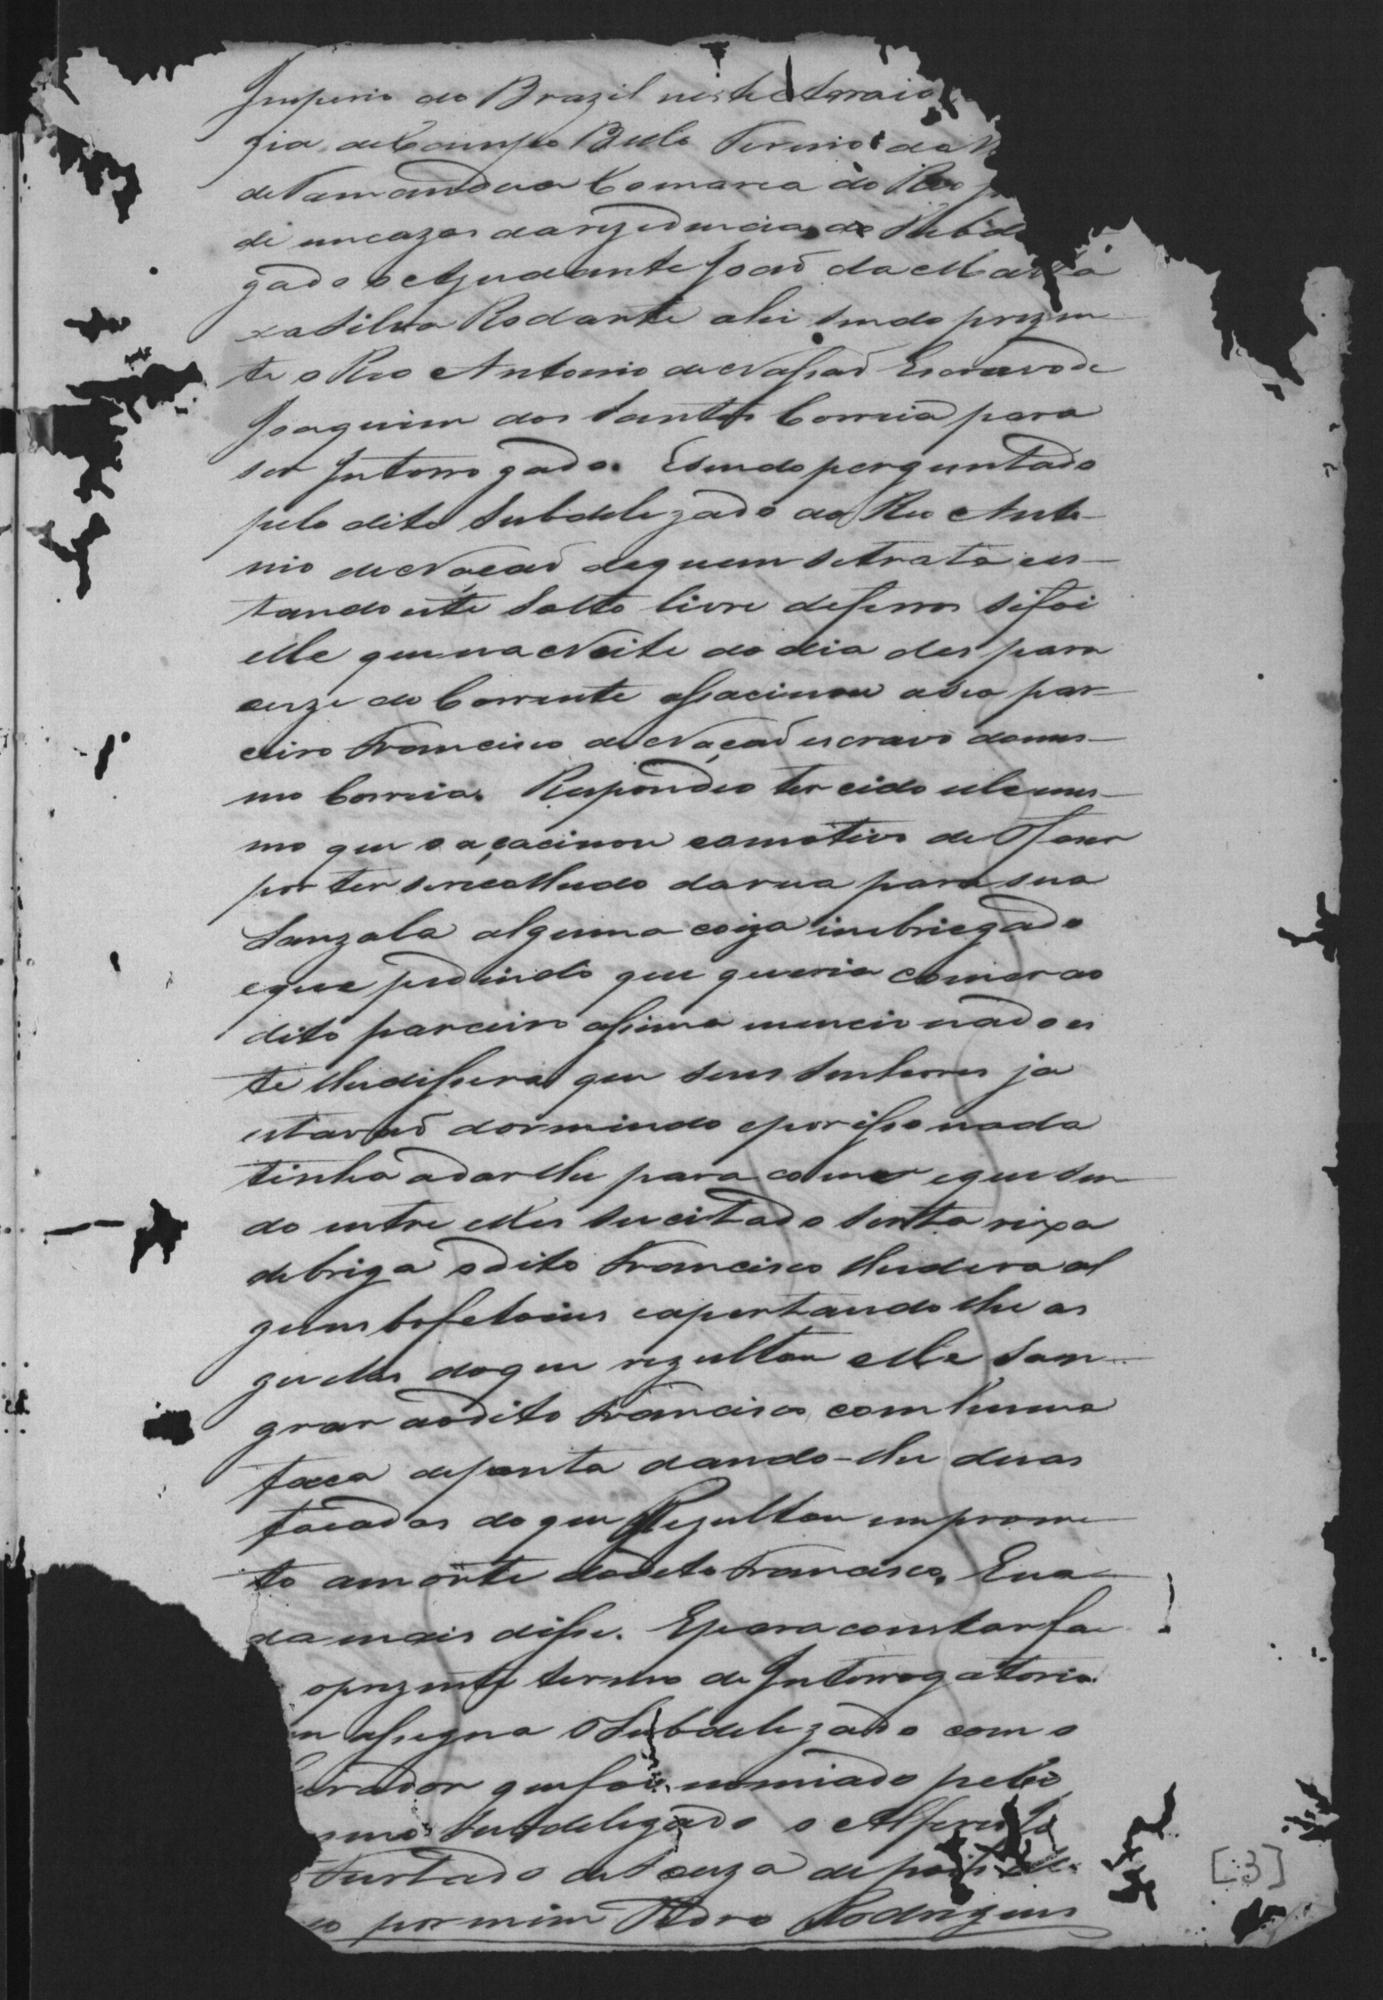 Imperio do Brazil neste Arraio
gia de Campo Bello Termo da
de Tamandua Comarca do Rio
di em cazas da rezidencia do Subd
gado o Ajudante João da Matta
da Silva Rodarte ahi sendo prezen
te o Reo Antonio de Nassaõ Escravo de
Joaquim dos Santos Correia para
ser Interrogado. E sendo perguntado
pelo dito Subdelegado ao Reo Anto-
nio de Nacaõ de quem se trata es-
tando este Solto livre de ferros se foi
elle que na Noite do dia des para
onze do Corrente assacinou a seo par-
ceiro Francisco de Naçaõ escravo do mes-
mo Correia. Respondeo ter cido elle mes-
mo que o açacinou
por ter se recolhido da rua para sua
Sanzala alguma coiza inebriegado
e que pedindo que queria comer ao
dito parceiro assima mencionado es
te lhe dissera que seus senhores ja
estavaõ dormindo e por isso nada
tinha a dar lhe para comer e que sen
do entre elles sucitado serta rixa
de briga o dito Francisco lhe dera al
guns bofetoins e apertando lhe as
guellas do que rezultou elle San-
grar ao dito Francisco com huma
faca de ponta dando-lhe duas
facadas do que Rezultou em prom
to a morte do dito Francisco. E na
da mais disse. E para constar fa
o prezente termo de Interrogatorio
em assigna o Subdelegado com o
urador que foi nomiado pelo
mo Subdelegado o Alferes
Furtado de Souza de pois de
do por mim Pedro Rodrigues
[3]